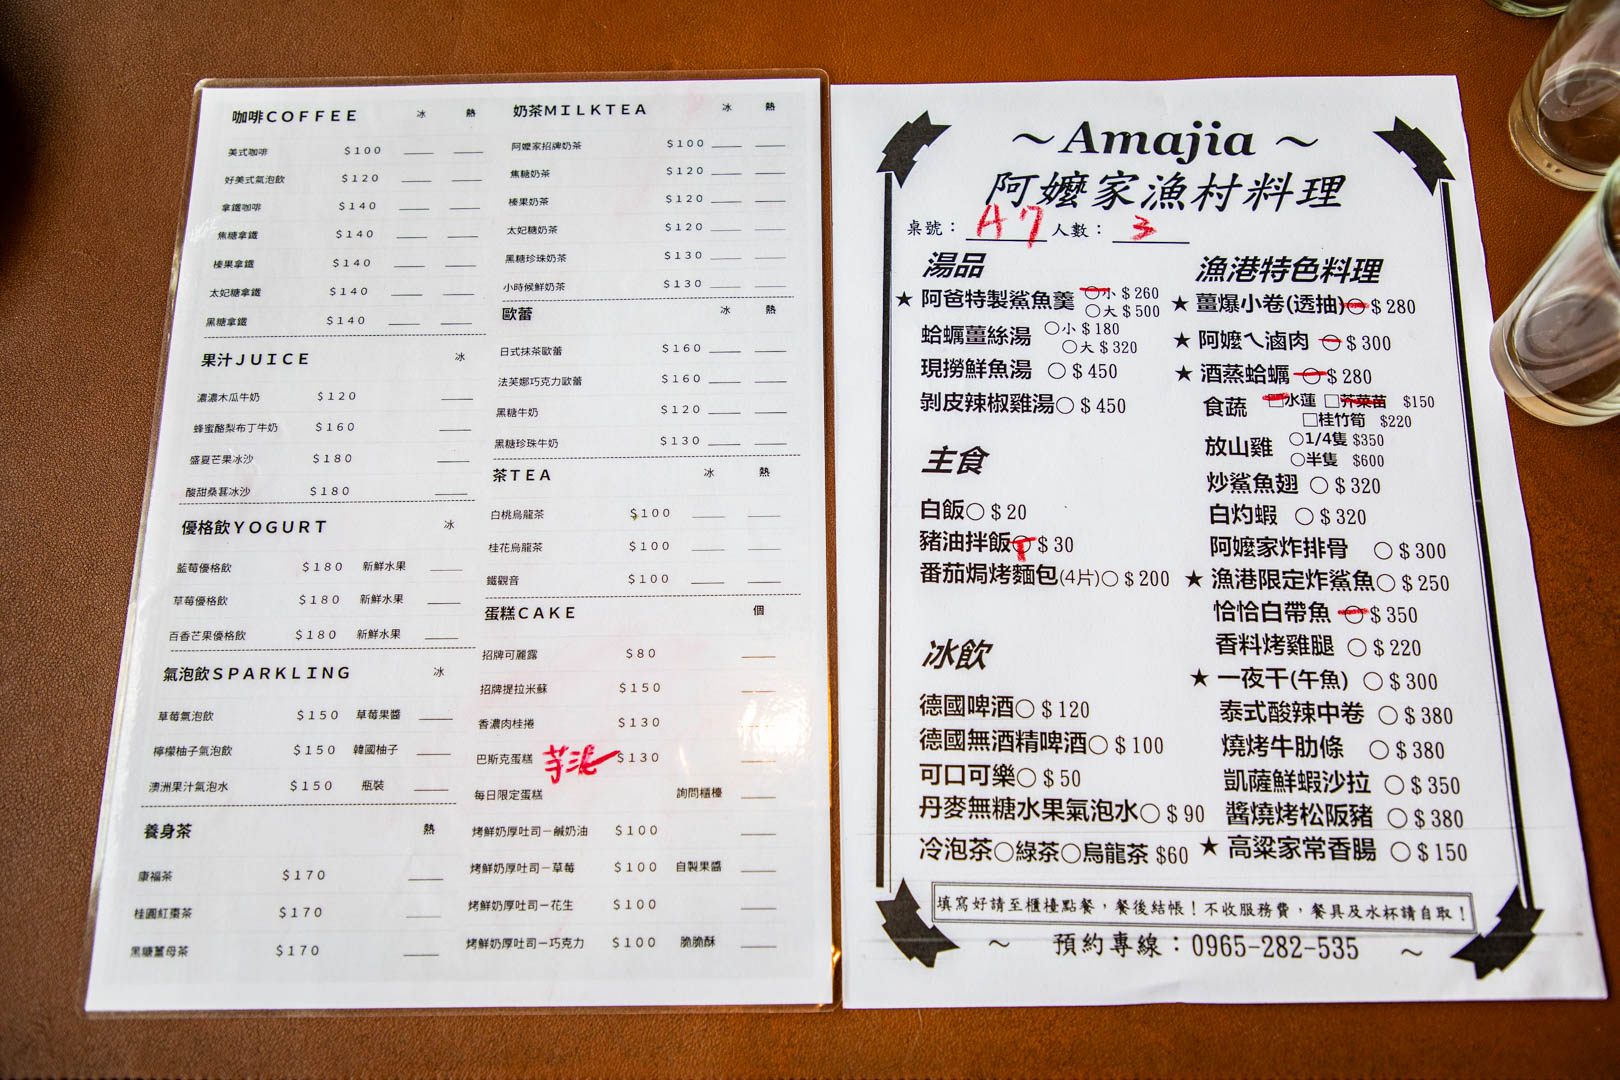 咖啡COFFEE 冰 熱
美式咖啡 $100
好美式氣泡飲 $120
拿鐵咖啡 $140
焦糖拿鐵 $140
榛果拿鐵 $140
太妃糖拿鐵 $140
黑糖拿鐵 $140
果汁JUICE 冰
濃濃木瓜牛奶 $120
蜂蜜酪梨布丁牛奶 $160
盛夏芒果冰沙 $180
酸甜桑葚冰沙 $180
優格飲YOGURT 冰
藍莓優格飲 $180 新鮮水果
草莓優格飲 $180 新鮮水果
百香芒果優格飲 $180 新鮮水果
氣泡飲SPARKLING 冰
草莓氣泡飲 $150 草莓果醬
檸檬柚子氣泡飲 $150 韓國柚子
澳洲果汁氣泡水 $150 瓶裝
養身茶 熱
康福茶 $170
桂圓紅棗茶 $170
黑糖薑母茶 $170
奶茶MILKTEA 冰 熱
阿嬤家招牌奶茶 $100
焦糖奶茶 $120
榛果奶茶 $120
太妃糖奶茶 $120
黑糖珍珠奶茶 $130
小時候鮮奶茶 $130
歐蕾 冰 熱
日式抹茶歐蕾 $160
法芙娜巧克力歐蕾 $160
黑糖牛奶 $120
黑糖珍珠牛奶 $130
茶TEA 冰 熱
白桃烏龍茶 $100
桂花烏龍茶 $100
鐵觀音 $100
蛋糕CAKE 個
招牌可麗露 $80
招牌提拉米蘇 $150
香濃肉桂捲 $130
巴斯克蛋糕 芋泥 $130
每日限定蛋糕 詢問櫃檯
烤鮮奶厚吐司－鹹奶油 $100
烤鮮奶厚吐司－草莓 $100 自製果醬
烤鮮奶厚吐司－花生 $100
烤鮮奶厚吐司－巧克力 $100 脆脆酥
～Amajia～
阿嬤家漁村料理
桌號： A7 人數： 3
湯品
★ 阿爸特製鯊魚羹 ○小 $260
○大 $500
蛤蠣薑絲湯 ○小 $180
○大 $320
現撈鮮魚湯 ○ $450
剝皮辣椒雞湯○ $450
主食
白飯○ $20
豬油拌飯○ $30
番茄焗烤麵包(4片)○ $200
冰飲
德國啤酒○ $120
德國無酒精啤酒○ $100
可口可樂○ $50
丹麥無糖水果氣泡水○ $90
冷泡茶○綠茶○烏龍茶 $60
漁港特色料理
★ 薑爆小卷(透抽)○ $280
★ 阿嬤ㄟ滷肉 ○ $300
★ 酒蒸蛤蠣 ○ $280
食蔬 □水蓮 □芥菜苗 $150
□桂竹筍 $220
放山雞 ○1/4隻 $350
○半隻 $600
炒鯊魚翅 ○ $320
白灼蝦 ○ $320
阿嬤家炸排骨 ○ $300
★ 漁港限定炸鯊魚○ $250
恰恰白帶魚 ○ $350
香料烤雞腿 ○ $220
★ 一夜干(午魚) ○ $300
泰式酸辣中卷 ○ $380
燒烤牛肋條 ○ $380
凱薩鮮蝦沙拉 ○ $350
醬燒烤松阪豬 ○ $380
★ 高粱家常香腸 ○ $150
填寫好請至櫃檯點餐，餐後結帳！不收服務費，餐具及水杯請自取！
～ 預約專線：0965-282-535 ～